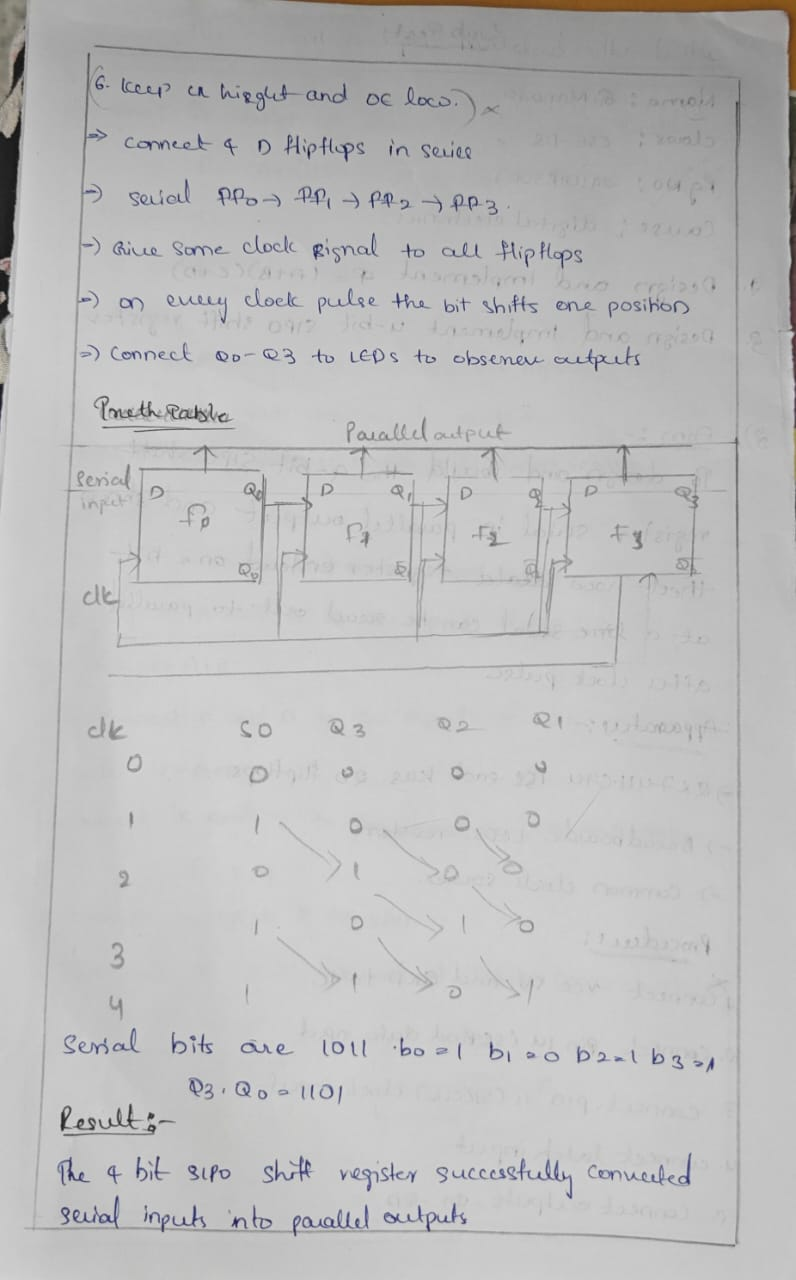 6. keep cn hieght and oc loco.) x
⇒ connect 4 D flipflops in series
⇒ serial PP0 → PP1 → PP2 → PP3.
⇒ Give some clock signal to all flipflops
⇒ on every clock pulse the bit shifts one position
⇒ connect Q0-Q3 to LEDs to obsenev outputs
Parallel output
Serial input
D Q0 D Q1 D Q D Q3
f0 f1 f2 f3
Q0 Q Q Q
clk
clk SO Q3 Q2 Q1
0 0 0 0 0
1 1 0 0 0
2 0 1 0 0
1 0 1 0
3
4 1 1 0 1
Serial bits are 1011 b0=1 b1=0 b2=1 b3=1
Q3, Q0 = 1101
Result :-
The 4 bit SIPO shift register successfully converted
serial inputs into parallel outputs